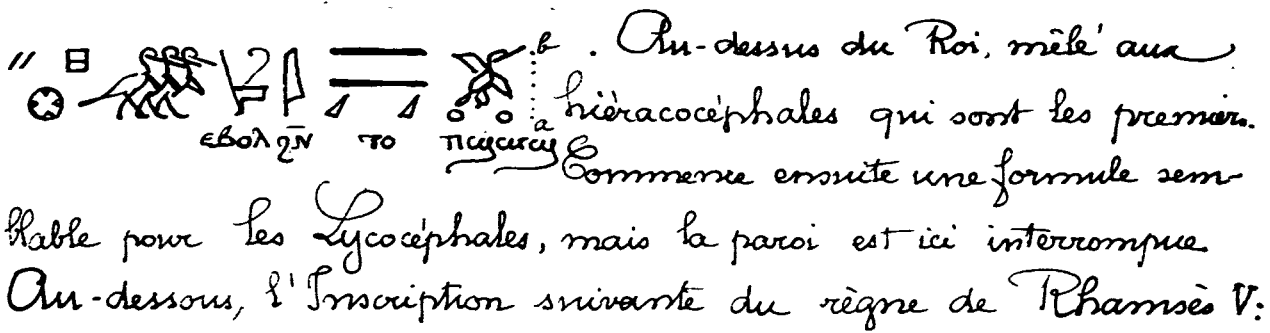 . Au-dessus du Roi, mêlé aux
hiéracocéphales qui sont les premiers.
ⲉⲃⲟⲗ ϩⲛ̄ ⲧⲟ
Commence ensuite une formule sem-
blable pour les Lycocéphales, mais la paroi est ici interrompue.
Au-dessous, l'Inscription suivante du règne de Rhamsès V: